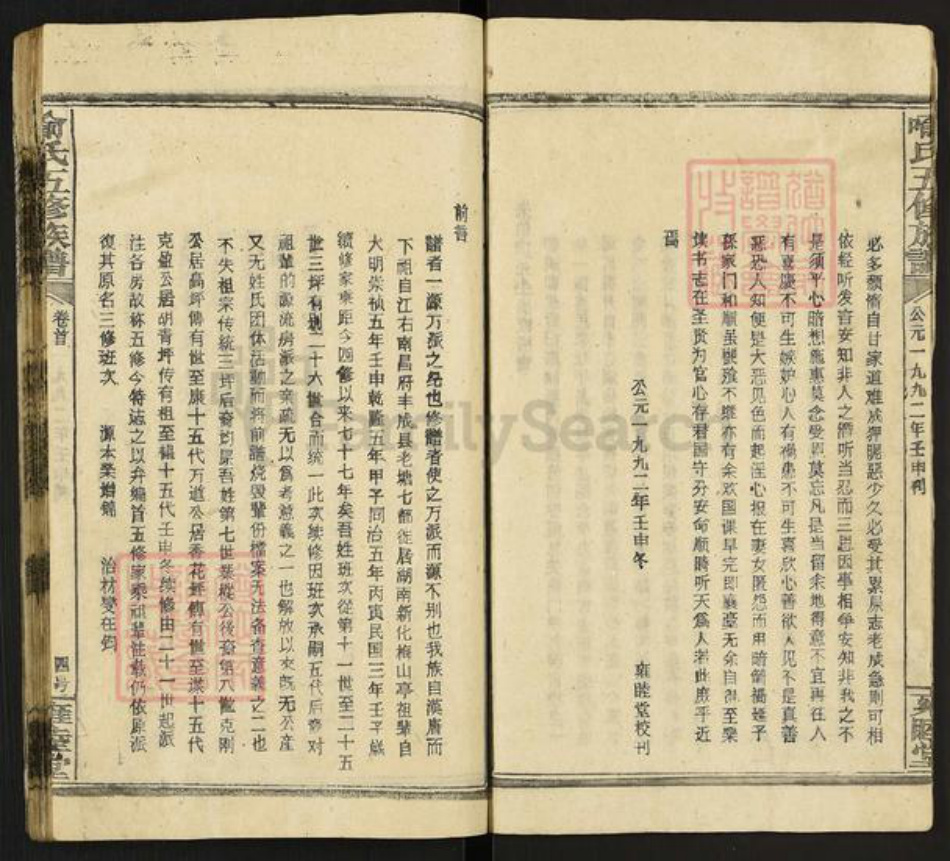 公元一九九二年壬申刊
必多颓惰自甘家道难成狎昵恶少久必受其累屈志老成急则可相
依轻听发言安知非人之谮诉当忍而三思因事相争安知非我之不
是须平心暗想施惠莫念受恩莫忘凡是当留余地得意不宜再往人
有喜庆不可生嫉妒心人有祸患不可生喜欣心善欲人见不是真善
恶恐人知便是大恶见色而起淫心报在妻女匿怨而用暗箭祸延子
孙家门和顺虽饔飧不继亦有余欢国课早完即囊橐无余自得至乐
读书志在圣贤为官心存君国守分安命顺时听天為人若此庶乎近
焉
公元一九九二年壬申冬 雍睦堂校刊
前言
譜者一源万派之纪也修譜者使之万派而源不别也我族自漢唐而
下祖自江右南昌府丰成县老塘七都徙居湖南新化梅山亭祖辈自
大明崇祯五年壬申乾隆五年甲子同治五年丙寅民国三年壬子歲
續修家乘距今四修以来七十七年矣吾姓班次從第十一世至二十五
世三坪有别二十六世合而统一此次续修因班次承嗣五代后裔对
祖辈的源流房派之亲疏无以為考兹義之一也解放以来既无公产
又无姓氏团体活動而将前譜烧毁輩份檔案无法备查意義之二也
不失祖宗传統三坪后裔均屎吾姓第七世 公後裔第八 克刚
公居高坪傳有世至康十五代万道公居香花坪傳有世至漢十五代
克盈公居胡青坪传有祖至 十五代壬申冬续修由二十一世起派
注各房故称五修今特志之以弁編首五修家乘祖輩注载仍依原派
復其原名三修班次 源本榮增錦 治材燮在鈞
俞氏五修族譜
卷首
四号